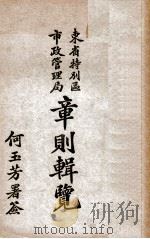 東省特別區
市政管理局
章則輯覽
何玉芳署簽